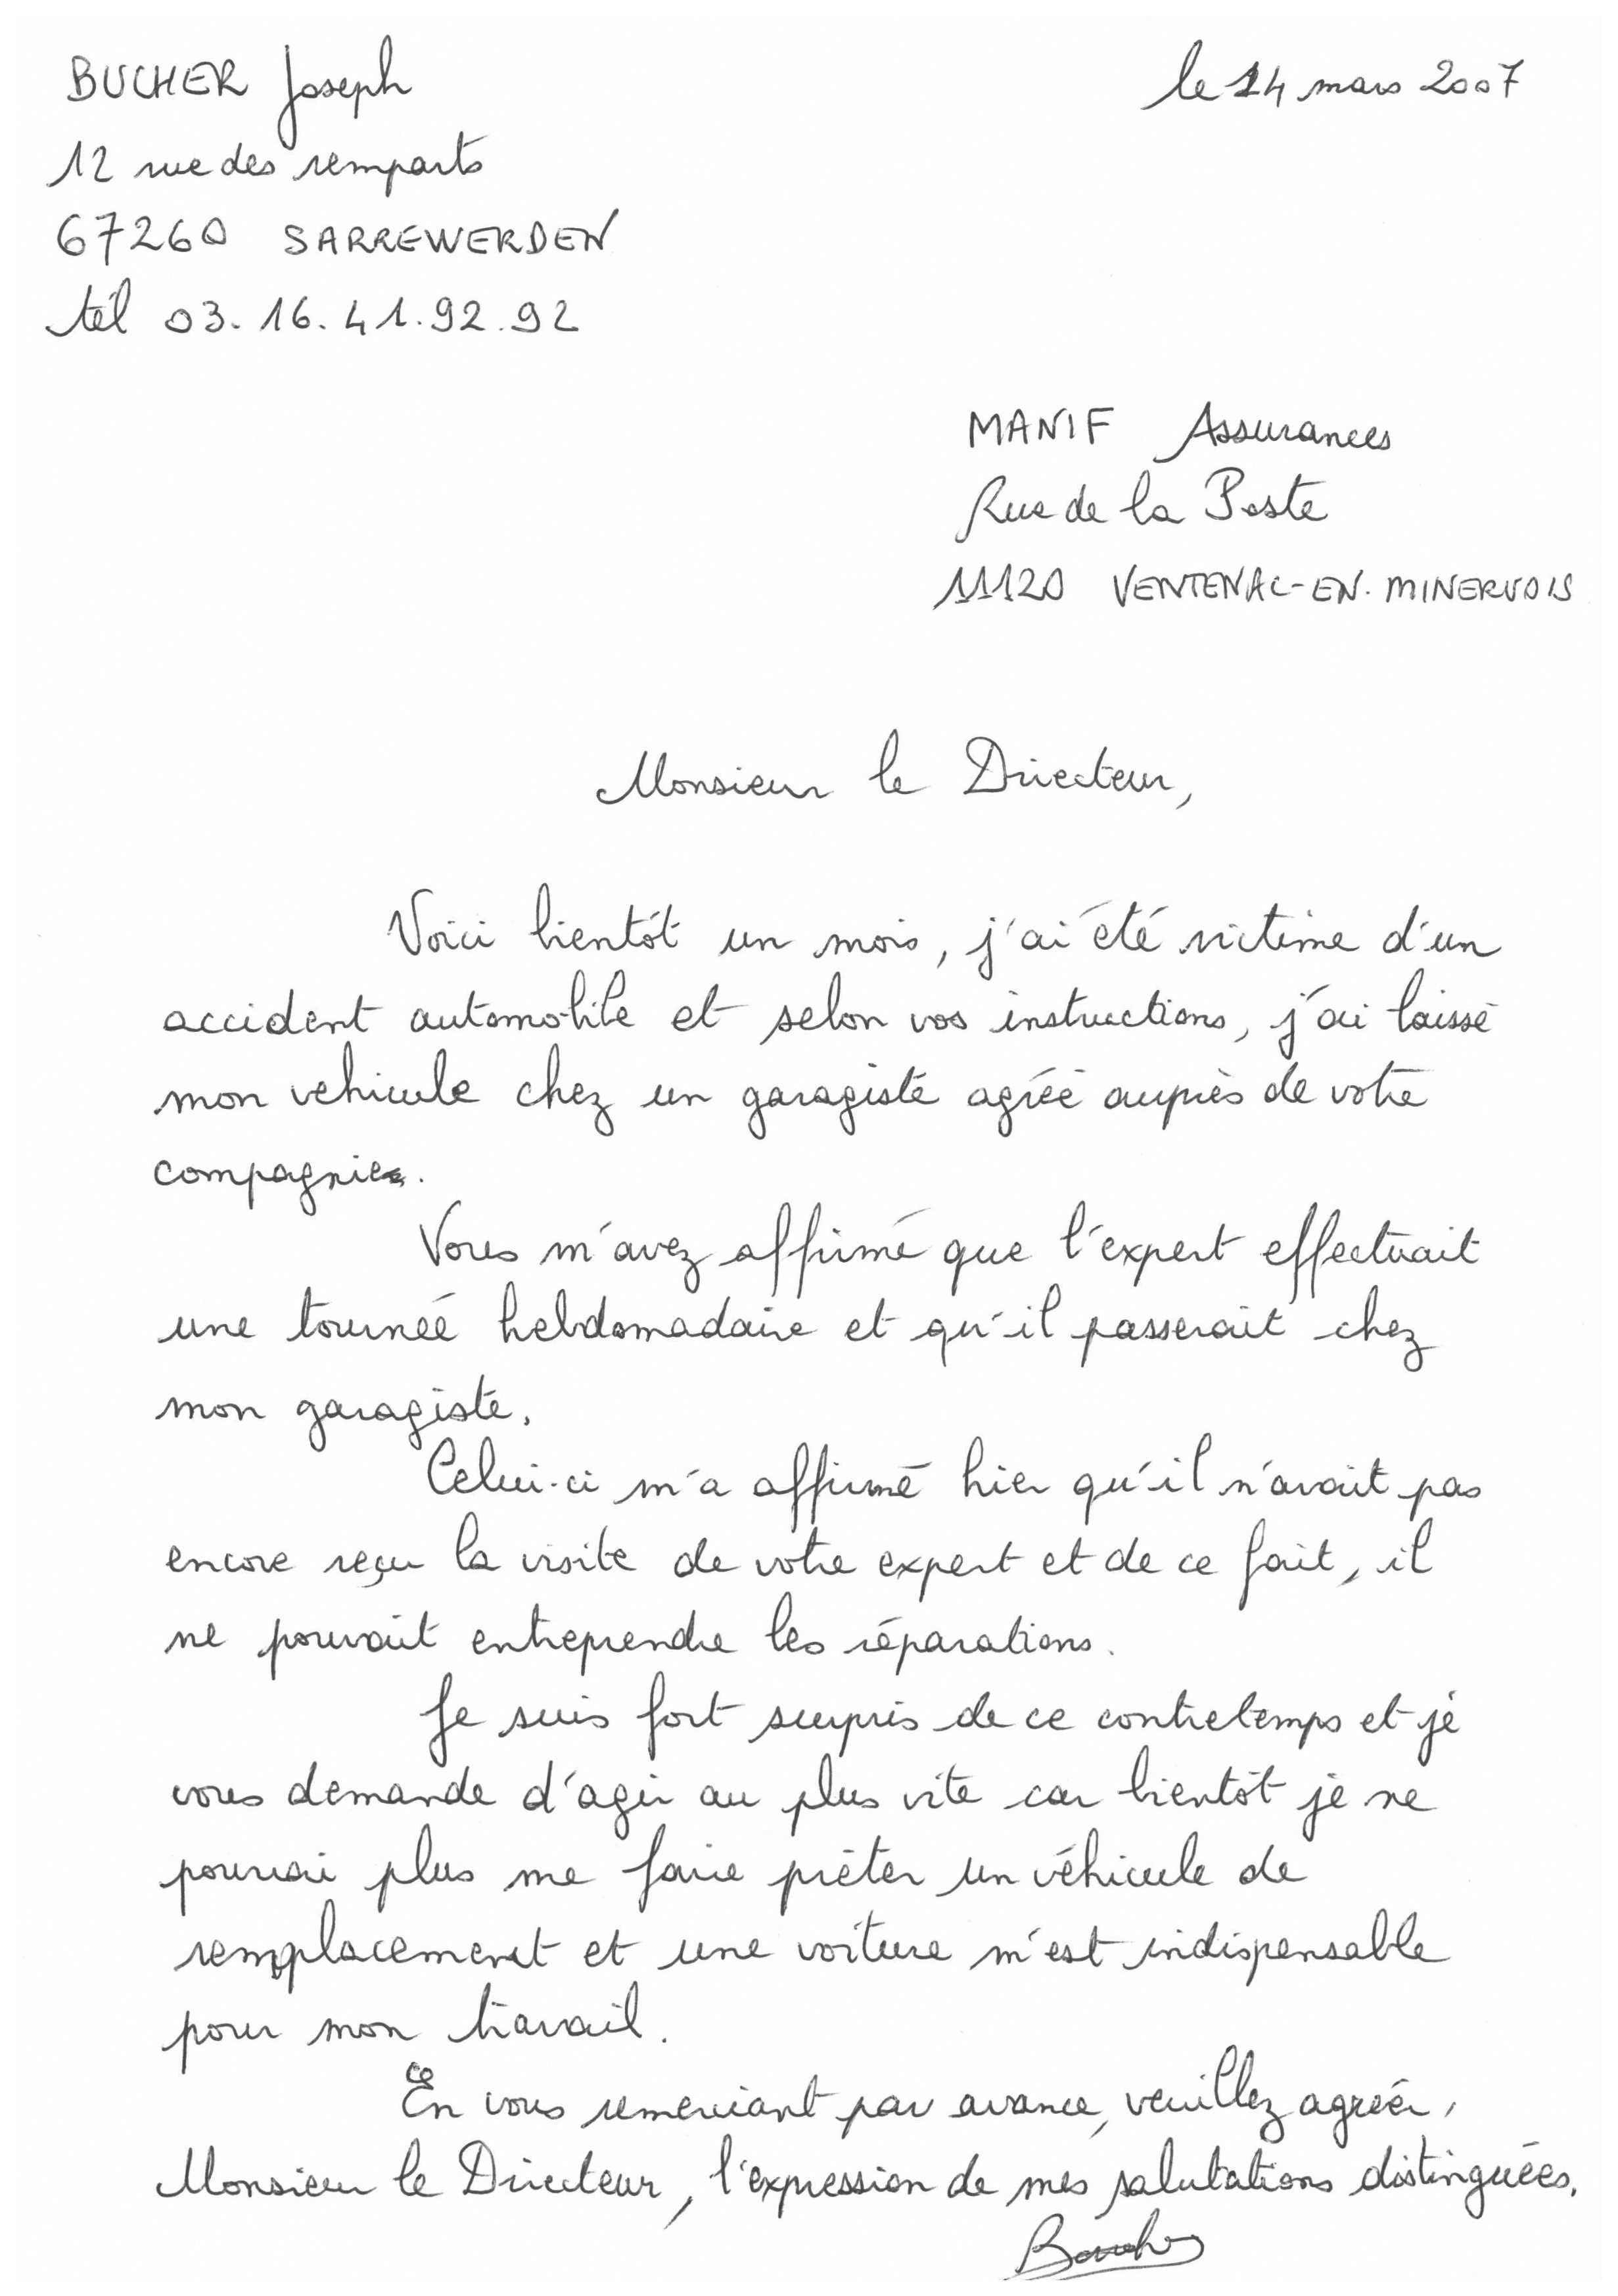 BUCHER Joseph
le 14 mars 2007
12 rue des remparts
67260 SARREWERDEN
tél 03.16.41.92.92
MANIF Assurances
Rue de la Poste
11120 VENTENAC-EN-MINERVOIS
Monsieur le Directeur,
Voici bientôt un mois, j'ai été victime d'un
accident automobile et selon vos instructions, j'ai laissé
mon vehicule chez un garagiste agréé auprès de votre
compagnie.
Vous m'avez affirmé que l'expert effectuait
une tournée hebdomadaire et qu'il passerait chez
mon garagiste.
Celui-ci m'a affirmé hier qu'il n'avait pas
encore reçu la visite de votre expert et de ce fait, il
ne pouvait entreprendre les réparations.
Je suis fort surpris de ce contretemps et je
vous demande d'agir au plus vite car bientôt je ne
pourrai plus me faire prêter un véhicule de
remplacement et une voiture m'est indispensable
pour mon travail.
En vous remerciant par avance, veuillez agréer,
Monsieur le Directeur, l'expression de mes salutations distinguées.